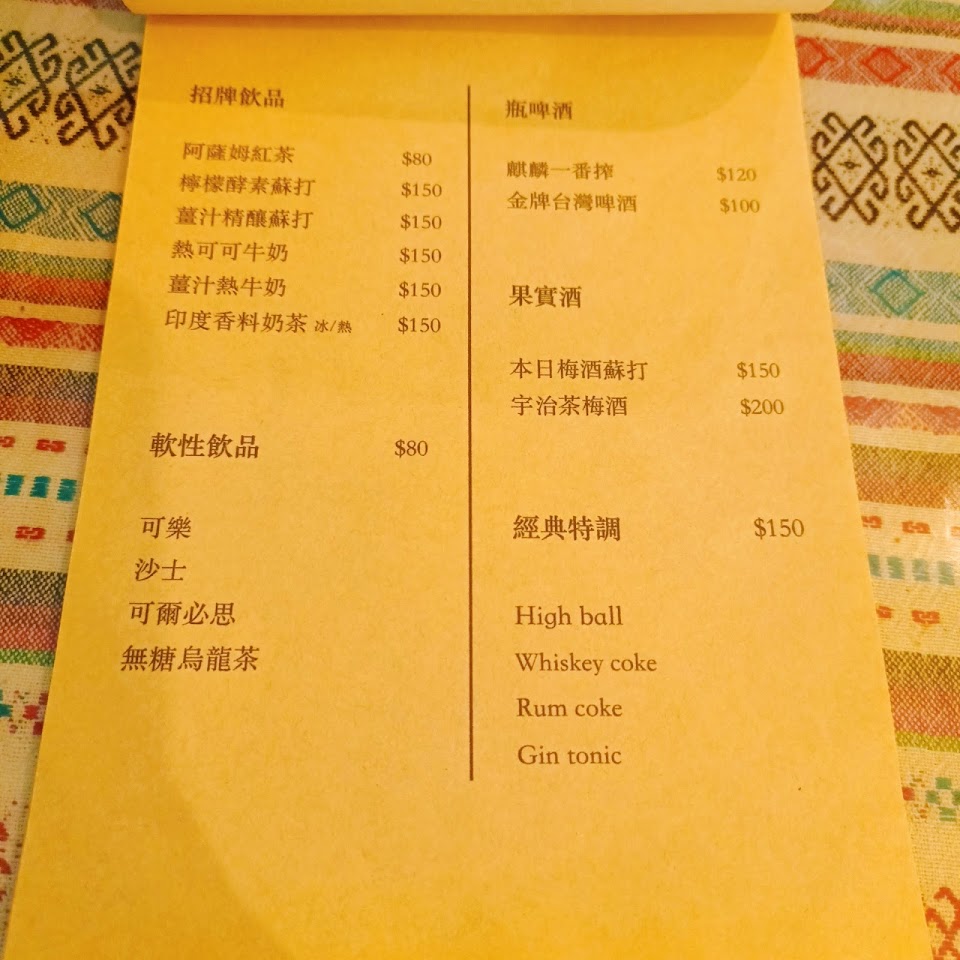 招牌飲品
阿薩姆紅茶 $80
檸檬酵素蘇打 $150
薑汁精釀蘇打 $150
熱可可牛奶 $150
薑汁熱牛奶 $150
印度香料奶茶 冰/熱 $150
軟性飲品 $80
可樂
沙士
可爾必思
無糖烏龍茶
瓶啤酒
麒麟一番搾 $120
金牌台灣啤酒 $100
果實酒
本日梅酒蘇打 $150
宇治茶梅酒 $200
經典特調 $150
High ball
Whiskey coke
Rum coke
Gin tonic